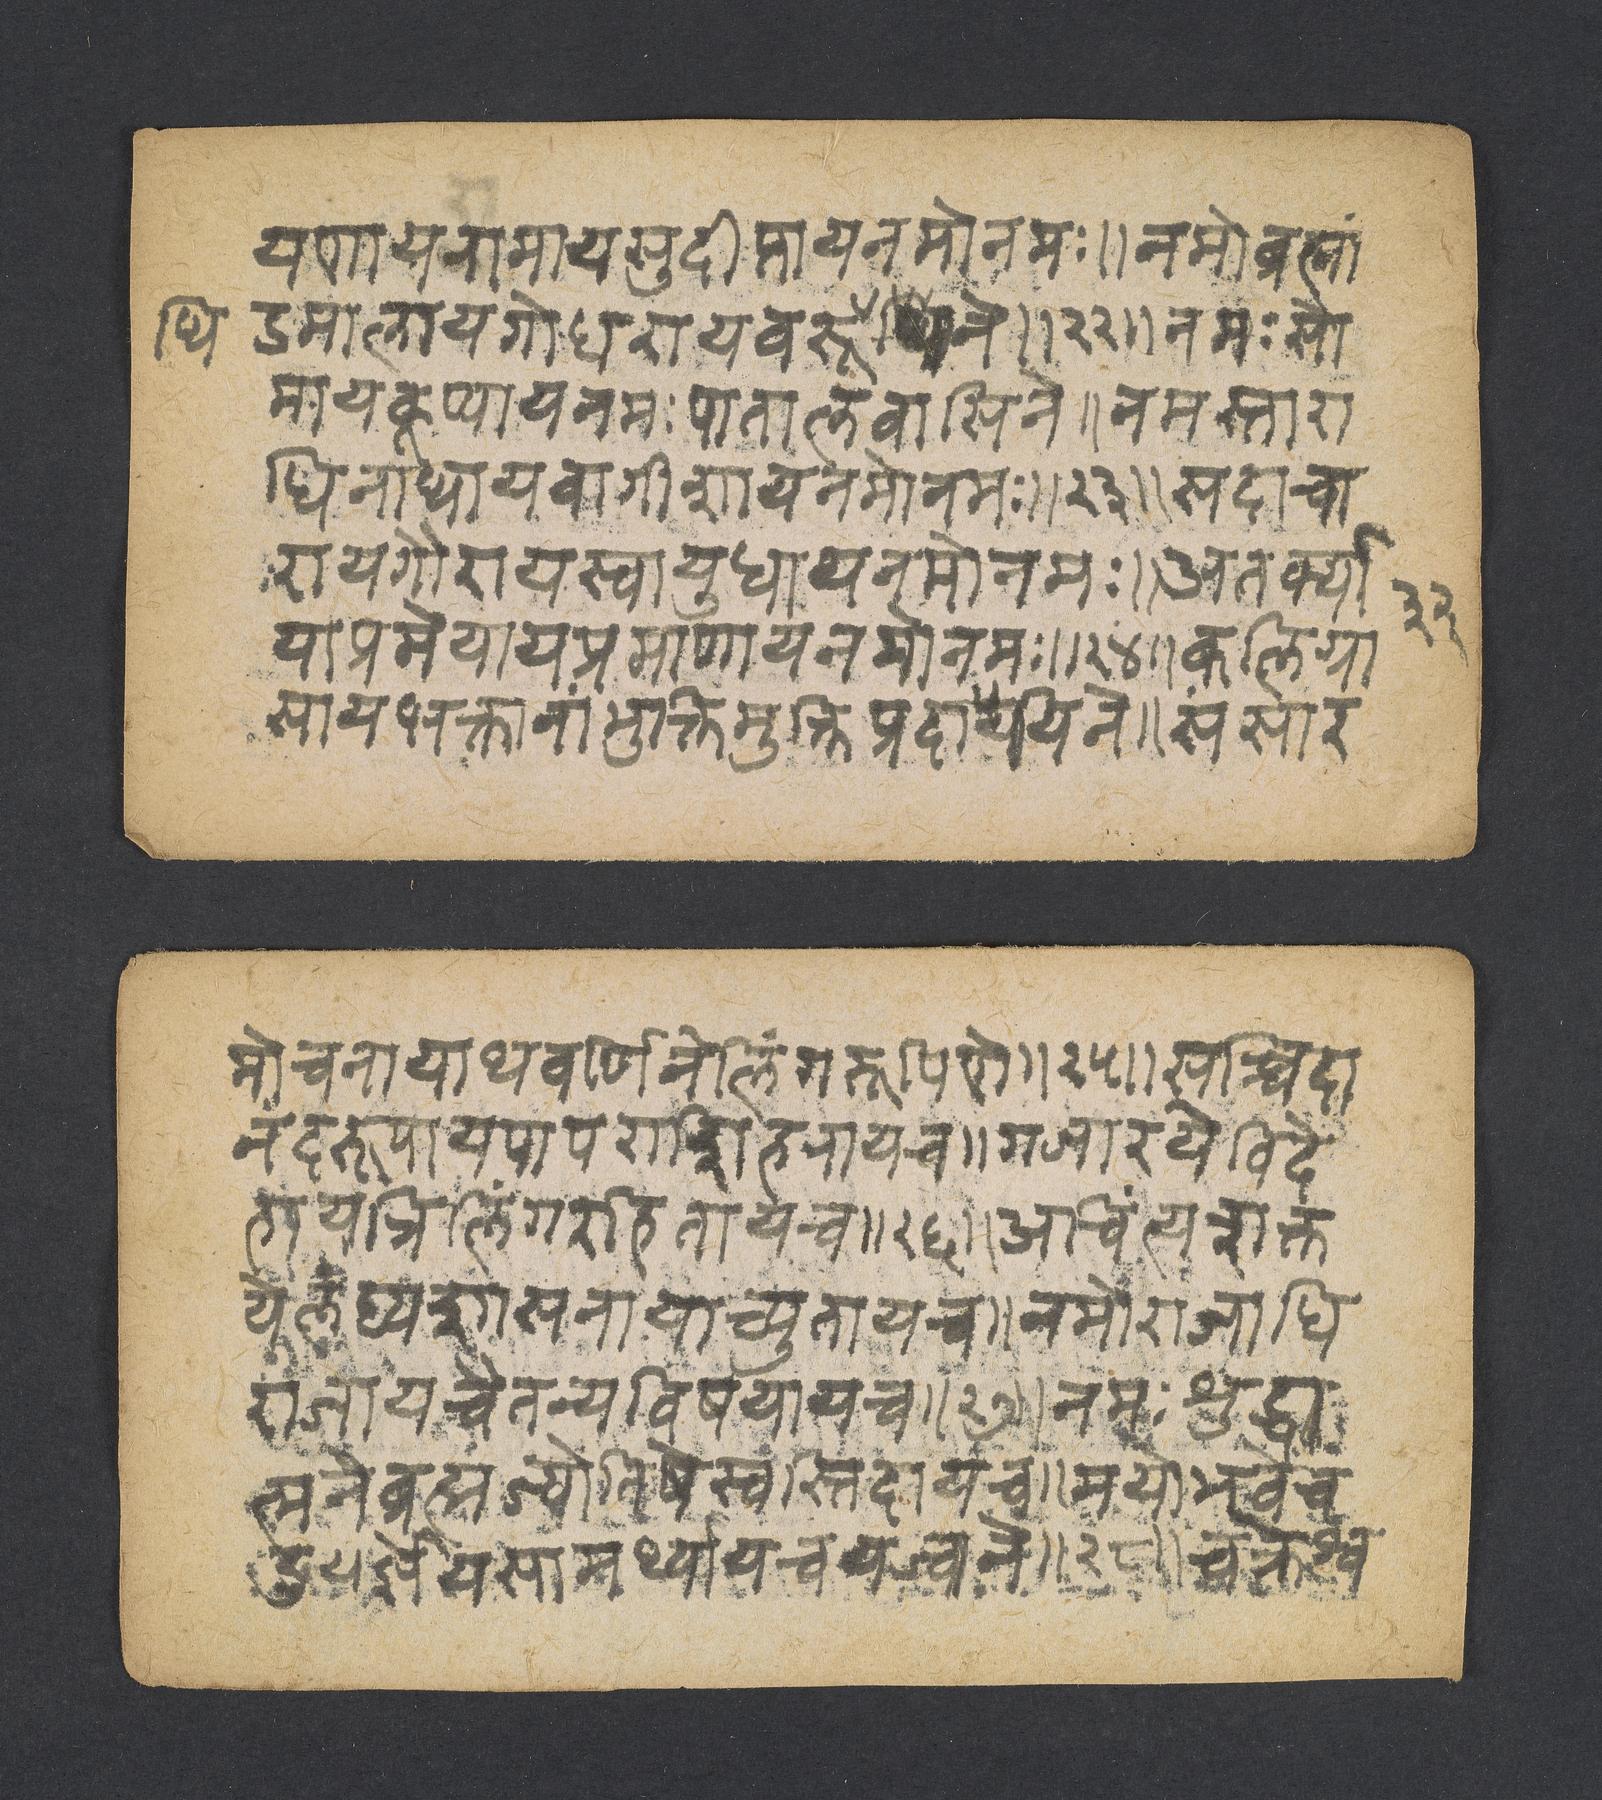 यणायरामायसुदीप्तायनमोनमः॥नमोब्रह्मां
डमालायगोधरायवरूथिने॥२२॥नमःसो
थि
मायकूप्यायनमःपातालवासिने॥नमस्तारा
धिनाथायवागीशायनमोनमः॥२३॥सदाचा
रायगौरायस्वायुधायनमोनमः॥अतर्क्या
३२
याप्रमेयायप्रमाणायनमोनमः॥२४॥कलिग्रा
सायभक्तानांभुक्तिमुक्तिप्रदायिने॥संसार
मोचनायाथवर्णिनेलिंगरूपिणे॥२५॥सच्चिदा
नंदरूपायपापराशिहरायच॥गजारयेविदे
हायत्रिलिंगरहितायच॥२६॥अचिंत्यशक्त
येलंघ्यशासनायाच्युतायच॥नमोराजाधि
राजायचैतन्यविषयायच॥२७॥नमःशुद्धा
त्मनेब्रह्मज्योतिषेस्वस्तिदायच॥मयोभवेच
दुर्ज्ञेयसामर्थ्यायचयज्वने॥२८॥चक्रेश्व